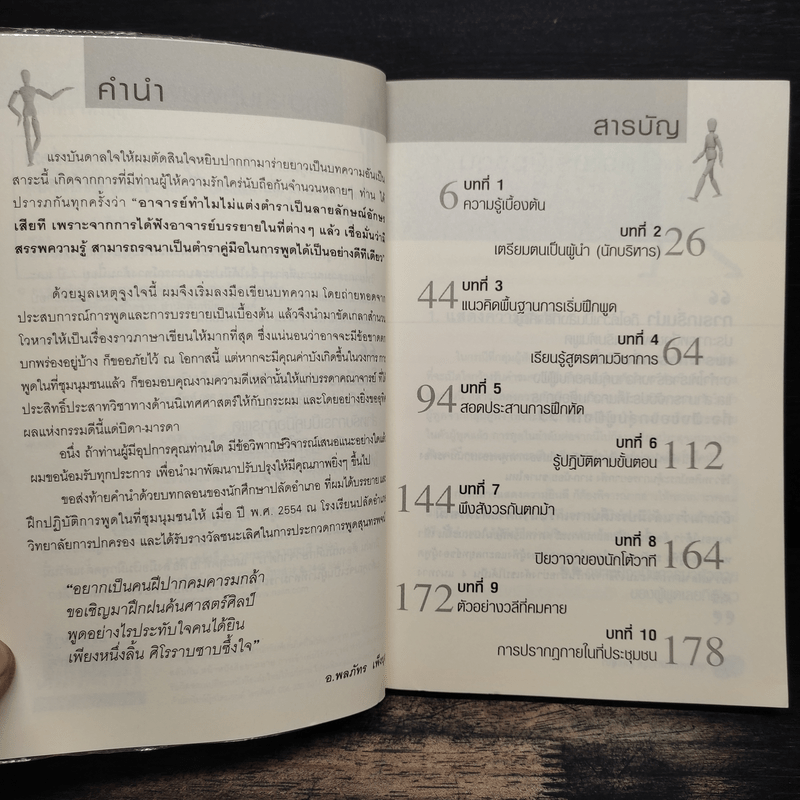 คำนำ
แรงบันดาลใจให้ผมตัดสินใจหยิบปากกามาร่ายยาวเป็นบทความอันเป็น
สาระนี้ เกิดจากการที่มีท่านผู้ให้ความรักใคร่นับถือกันจำนวนหลายๆ ท่าน ได้
ปรารภกันทุกครั้งว่า "อาจารย์ทำไมไม่แต่งตำราเป็นลายลักษณ์อักษร
เสียที เพราะจากการได้ฟังอาจารย์บรรยายในที่ต่างๆ แล้ว เชื่อมั่นว่ามี
สรรพความรู้ สามารถรจนาเป็นตำราคู่มือในการพูดได้เป็นอย่างดีทีเดียว"
ด้วยมูลเหตุจูงใจนี้ ผมจึงเริ่มลงมือเขียนบทความ โดยถ่ายทอดจาก
ประสบการณ์การพูดและการบรรยายเป็นเบื้องต้น แล้วจึงนำมาขัดเกลาสำนวน
โวหารให้เป็นเรื่องราวภาษาเขียนให้มากที่สุด ซึ่งแน่นอนว่าอาจจะมีข้อขาดตก
บกพร่องอยู่บ้าง ก็ขออภัยไว้ ณ โอกาสนี้ แต่หากจะมีคุณค่าบังเกิดขึ้นในวงการการ
พูดในที่ชุมนุมชนแล้ว ก็ขอมอบคุณงามความดีเหล่านั้นให้แก่บรรดาคณาจารย์ ที่
ประสิทธิ์ประสาทวิชาทางด้านนิเทศศาสตร์ให้กับกระผม และโดยอย่างยิ่งขออุทิศ
ผลแห่งกรรมดีนี้แด่บิดา-มารดา
อนึ่ง ถ้าท่านผู้มีอุปการคุณท่านใด มีข้อวิพากษ์วิจารณ์เสนอแนะอย่างใดแล้ว
ผมขอน้อมรับทุกประการ เพื่อนำมาพัฒนาปรับปรุงให้มีคุณภาพยิ่งๆ ขึ้นไป
ขอส่งท้ายคำนำด้วยบทกลอนของนักศึกษาปลัดอำเภอ ที่ผมได้บรรยาย และ
ฝึกปฏิบัติการพูดในที่ชุมนุมชนให้ เมื่อ ปี พ.ศ. 2554 ณ โรงเรียนปลัดอำเภอ
วิทยาลัยการปกครอง และได้รับรางวัลชนะเลิศในการประกวดการพูดสุนทรพจน์
"อยากเป็นคนฝีปากคมคารมกล้า
ขอเชิญมาฝึกฝนค้นศาสตร์ศิลป์
พูดอย่างไรประทับใจคนได้ยิน
เพียงหนึ่งลิ้น ศิโรราบซาบซึ้งใจ"
อ.พลภัทร
สารบัญ
6 บทที่ 1
ความรู้เบื้องต้น
บทที่ 2
เตรียมตนเป็นผู้นำ (นักบริหาร) 26
44 บทที่ 3
แนวคิดพื้นฐานการเริ่มฝึกพูด
บทที่ 4
เรียนรู้สูตรตามวิชาการ 64
94 บทที่ 5
สอดประสานการฝึกหัด
บทที่ 6
รู้ปฏิบัติตามขั้นตอน 112
144 บทที่ 7
พึงสังวรกันตกม้า
บทที่ 8
ปิยวาจาของนักโต้วาที 164
172 บทที่ 9
ตัวอย่างวลีที่คมคาย
บทที่ 10
การปรากฏกายในที่ประชุมชน 178